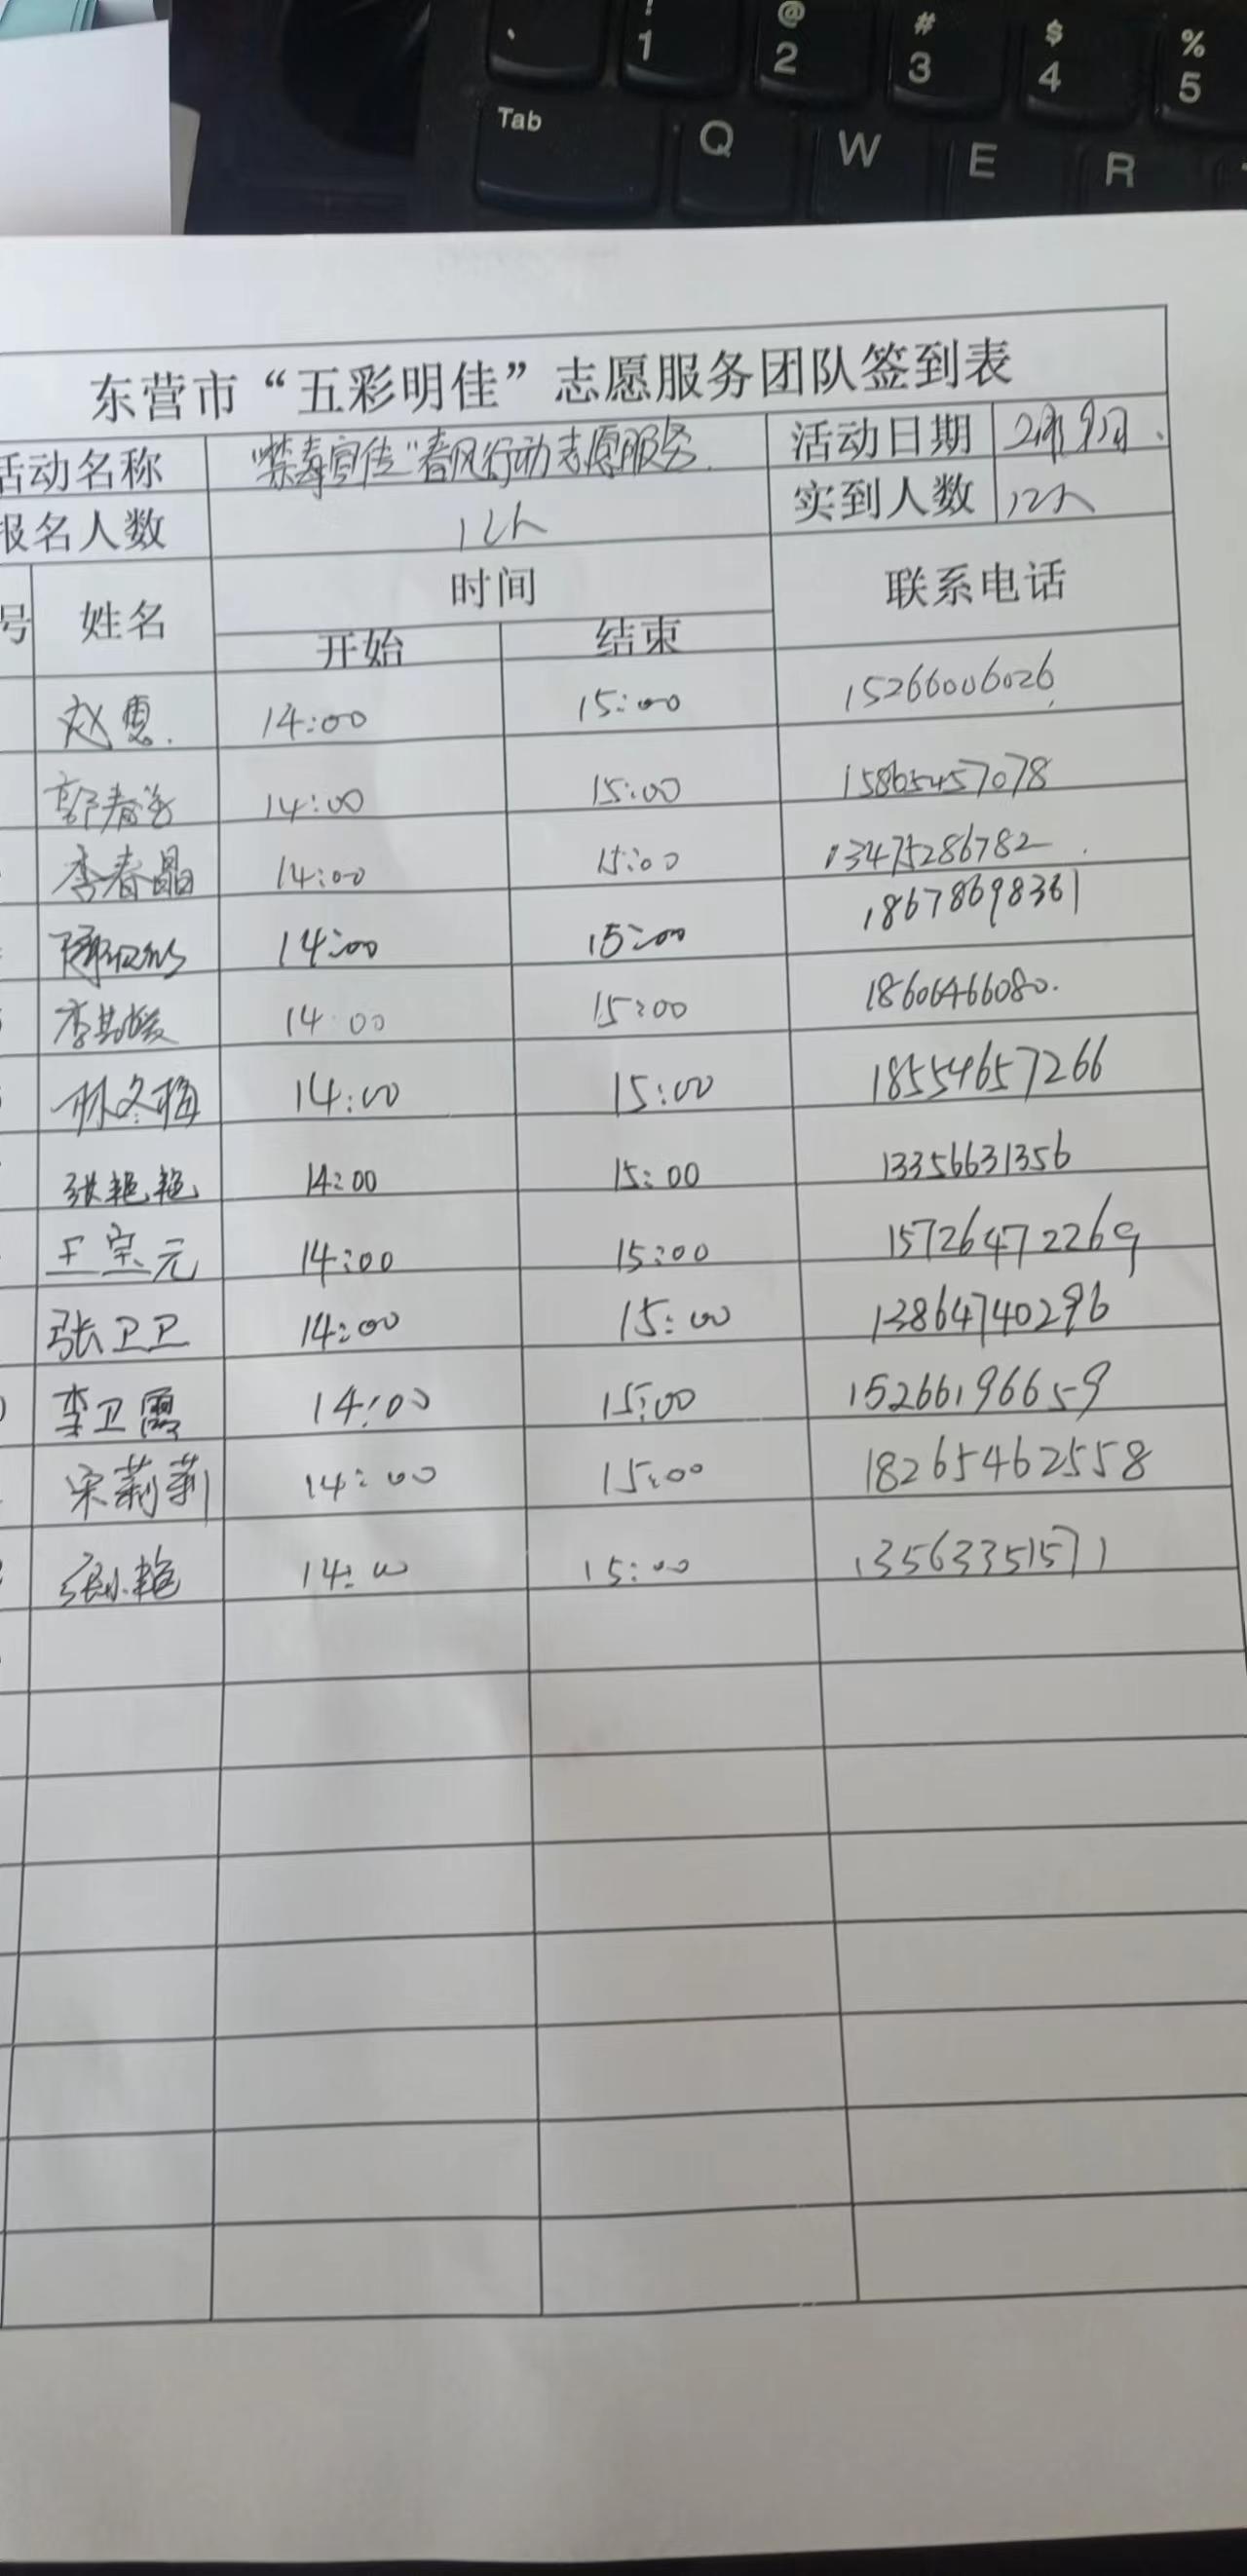 !
1
@
2
#
3
$
4
%
5
Tab
Q
W
E
R
东营市“五彩明佳”志愿服务团队签到表
活动名称 “禁毒宣传”春风行动志愿服务 活动日期
报名人数 12人 实到人数 12人
号 姓名 时间 联系电话
开始 结束
赵惠 14:00 15:00 15266006026
郭春 14:00 15:00 15865457078
李春晶 14:00 15:00 13475286782
14:00 15:00 18678698361
李其 14:00 15:00 18606466080
林冬梅 14:00 15:00 18554657266
张艳艳 14:00 15:00 13356631356
王宝元 14:00 15:00 15726472269
张卫卫 14:00 15:00 13864740296
李卫霞 14:00 15:00 15266196659
宋莉莉 14:00 15:00 18265462558
张小艳 14:00 15:00 13563351571